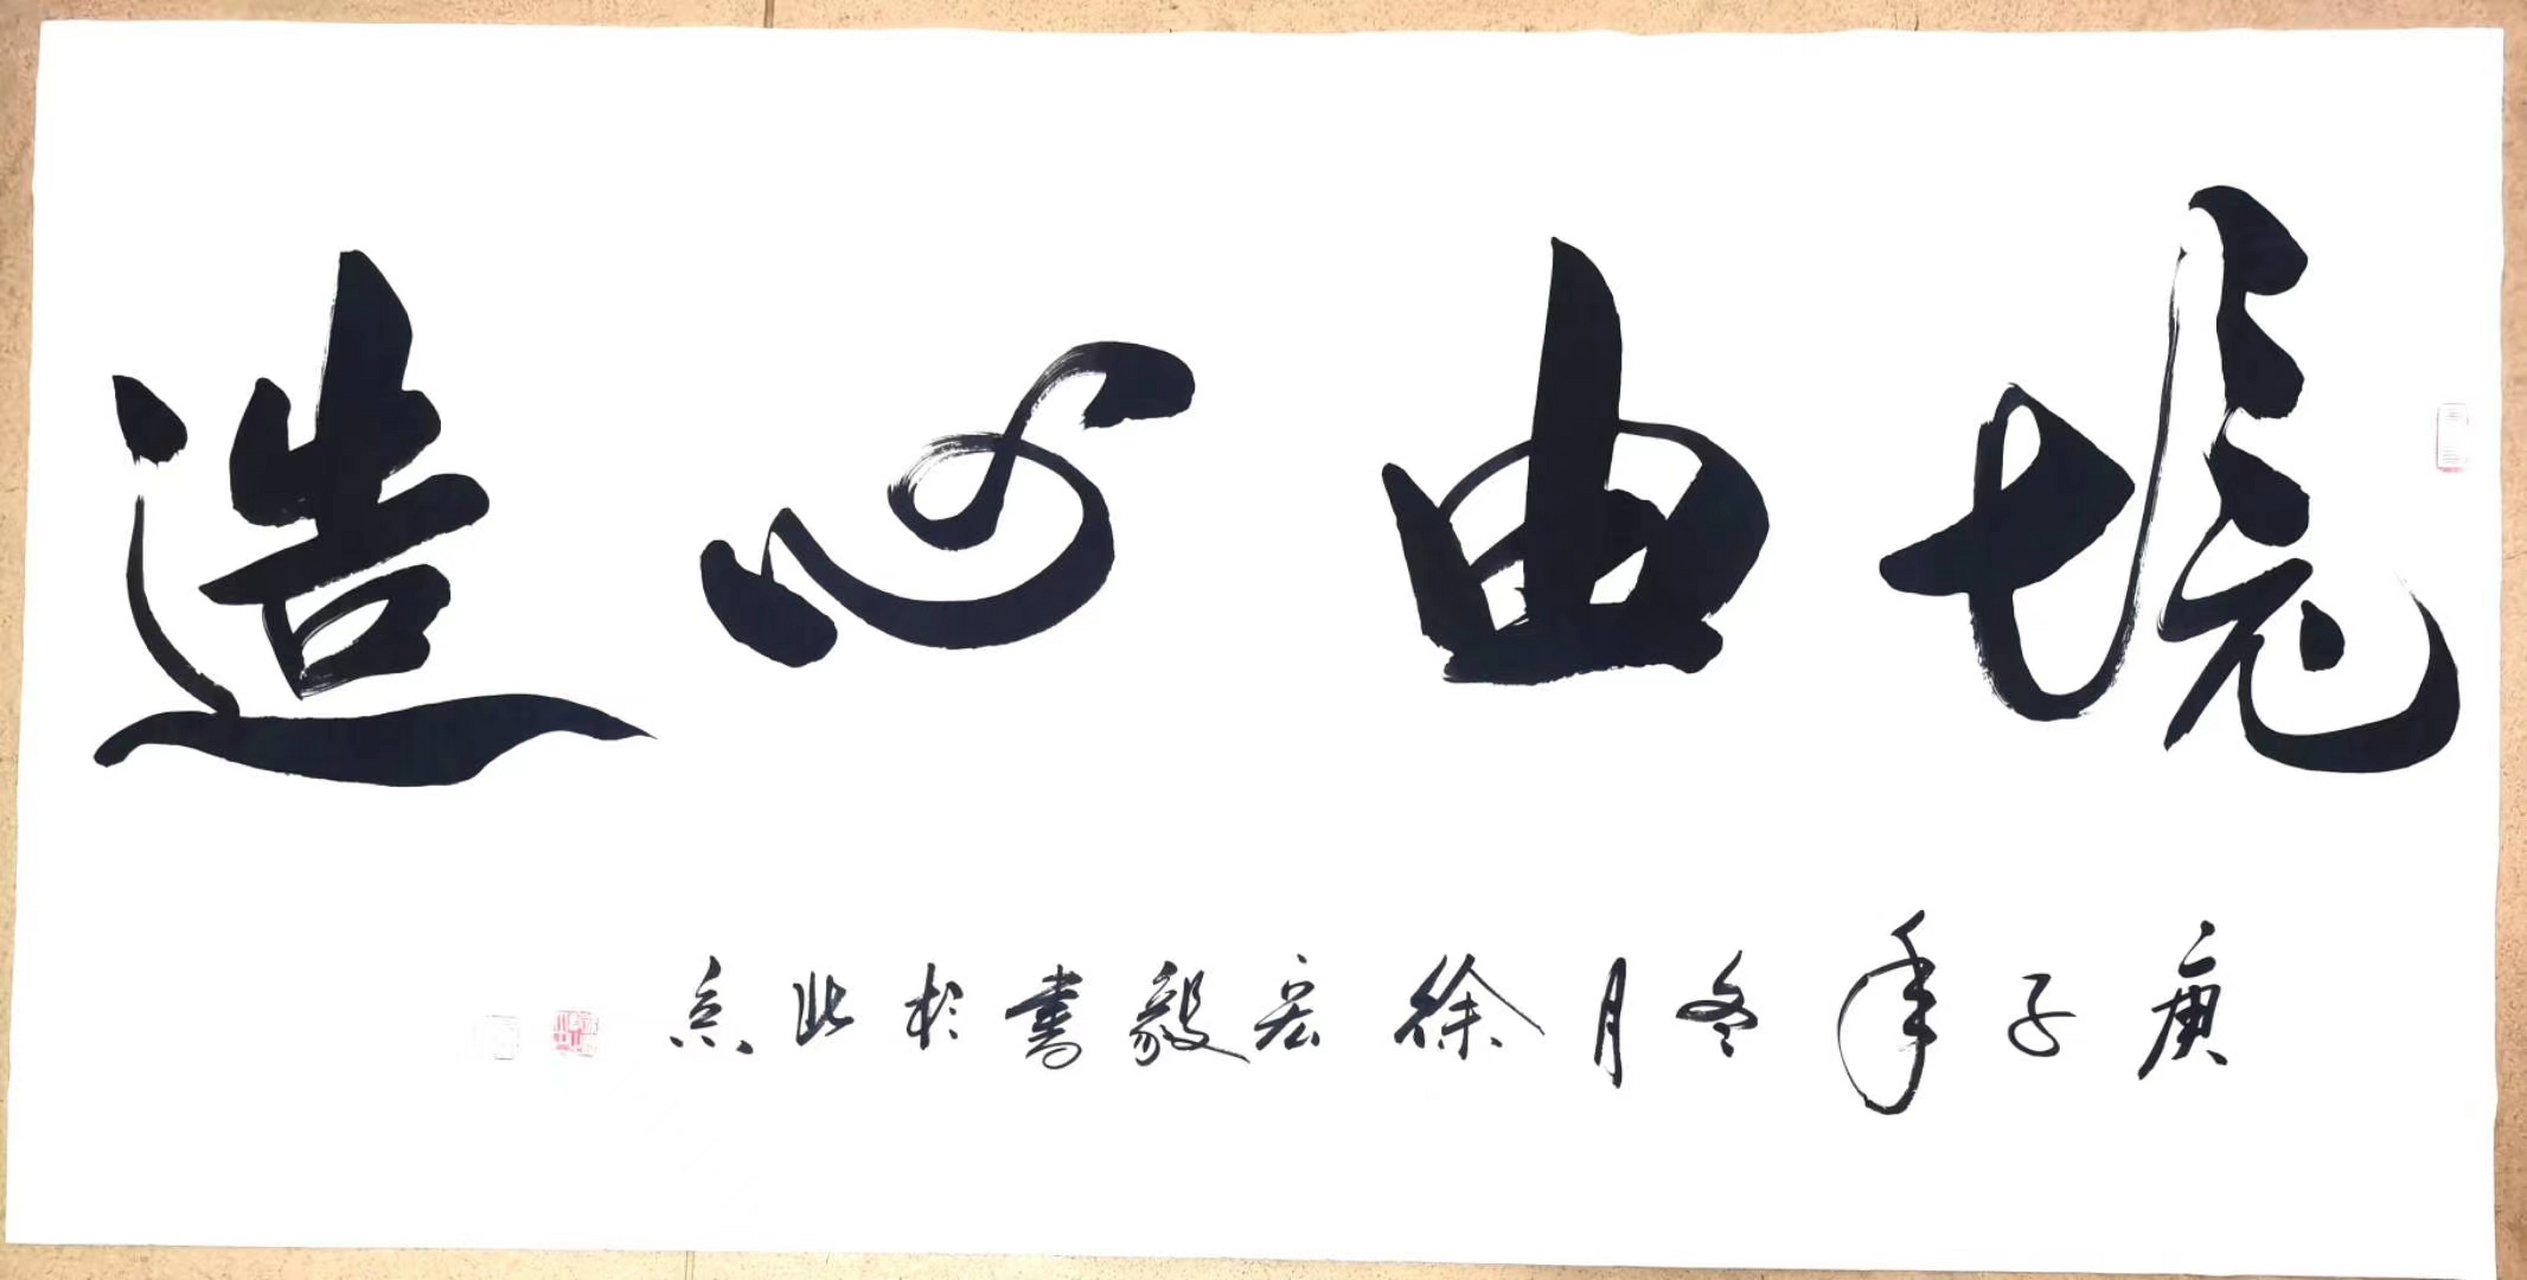 境由心造
庚子年冬月徐宏毅書於北京